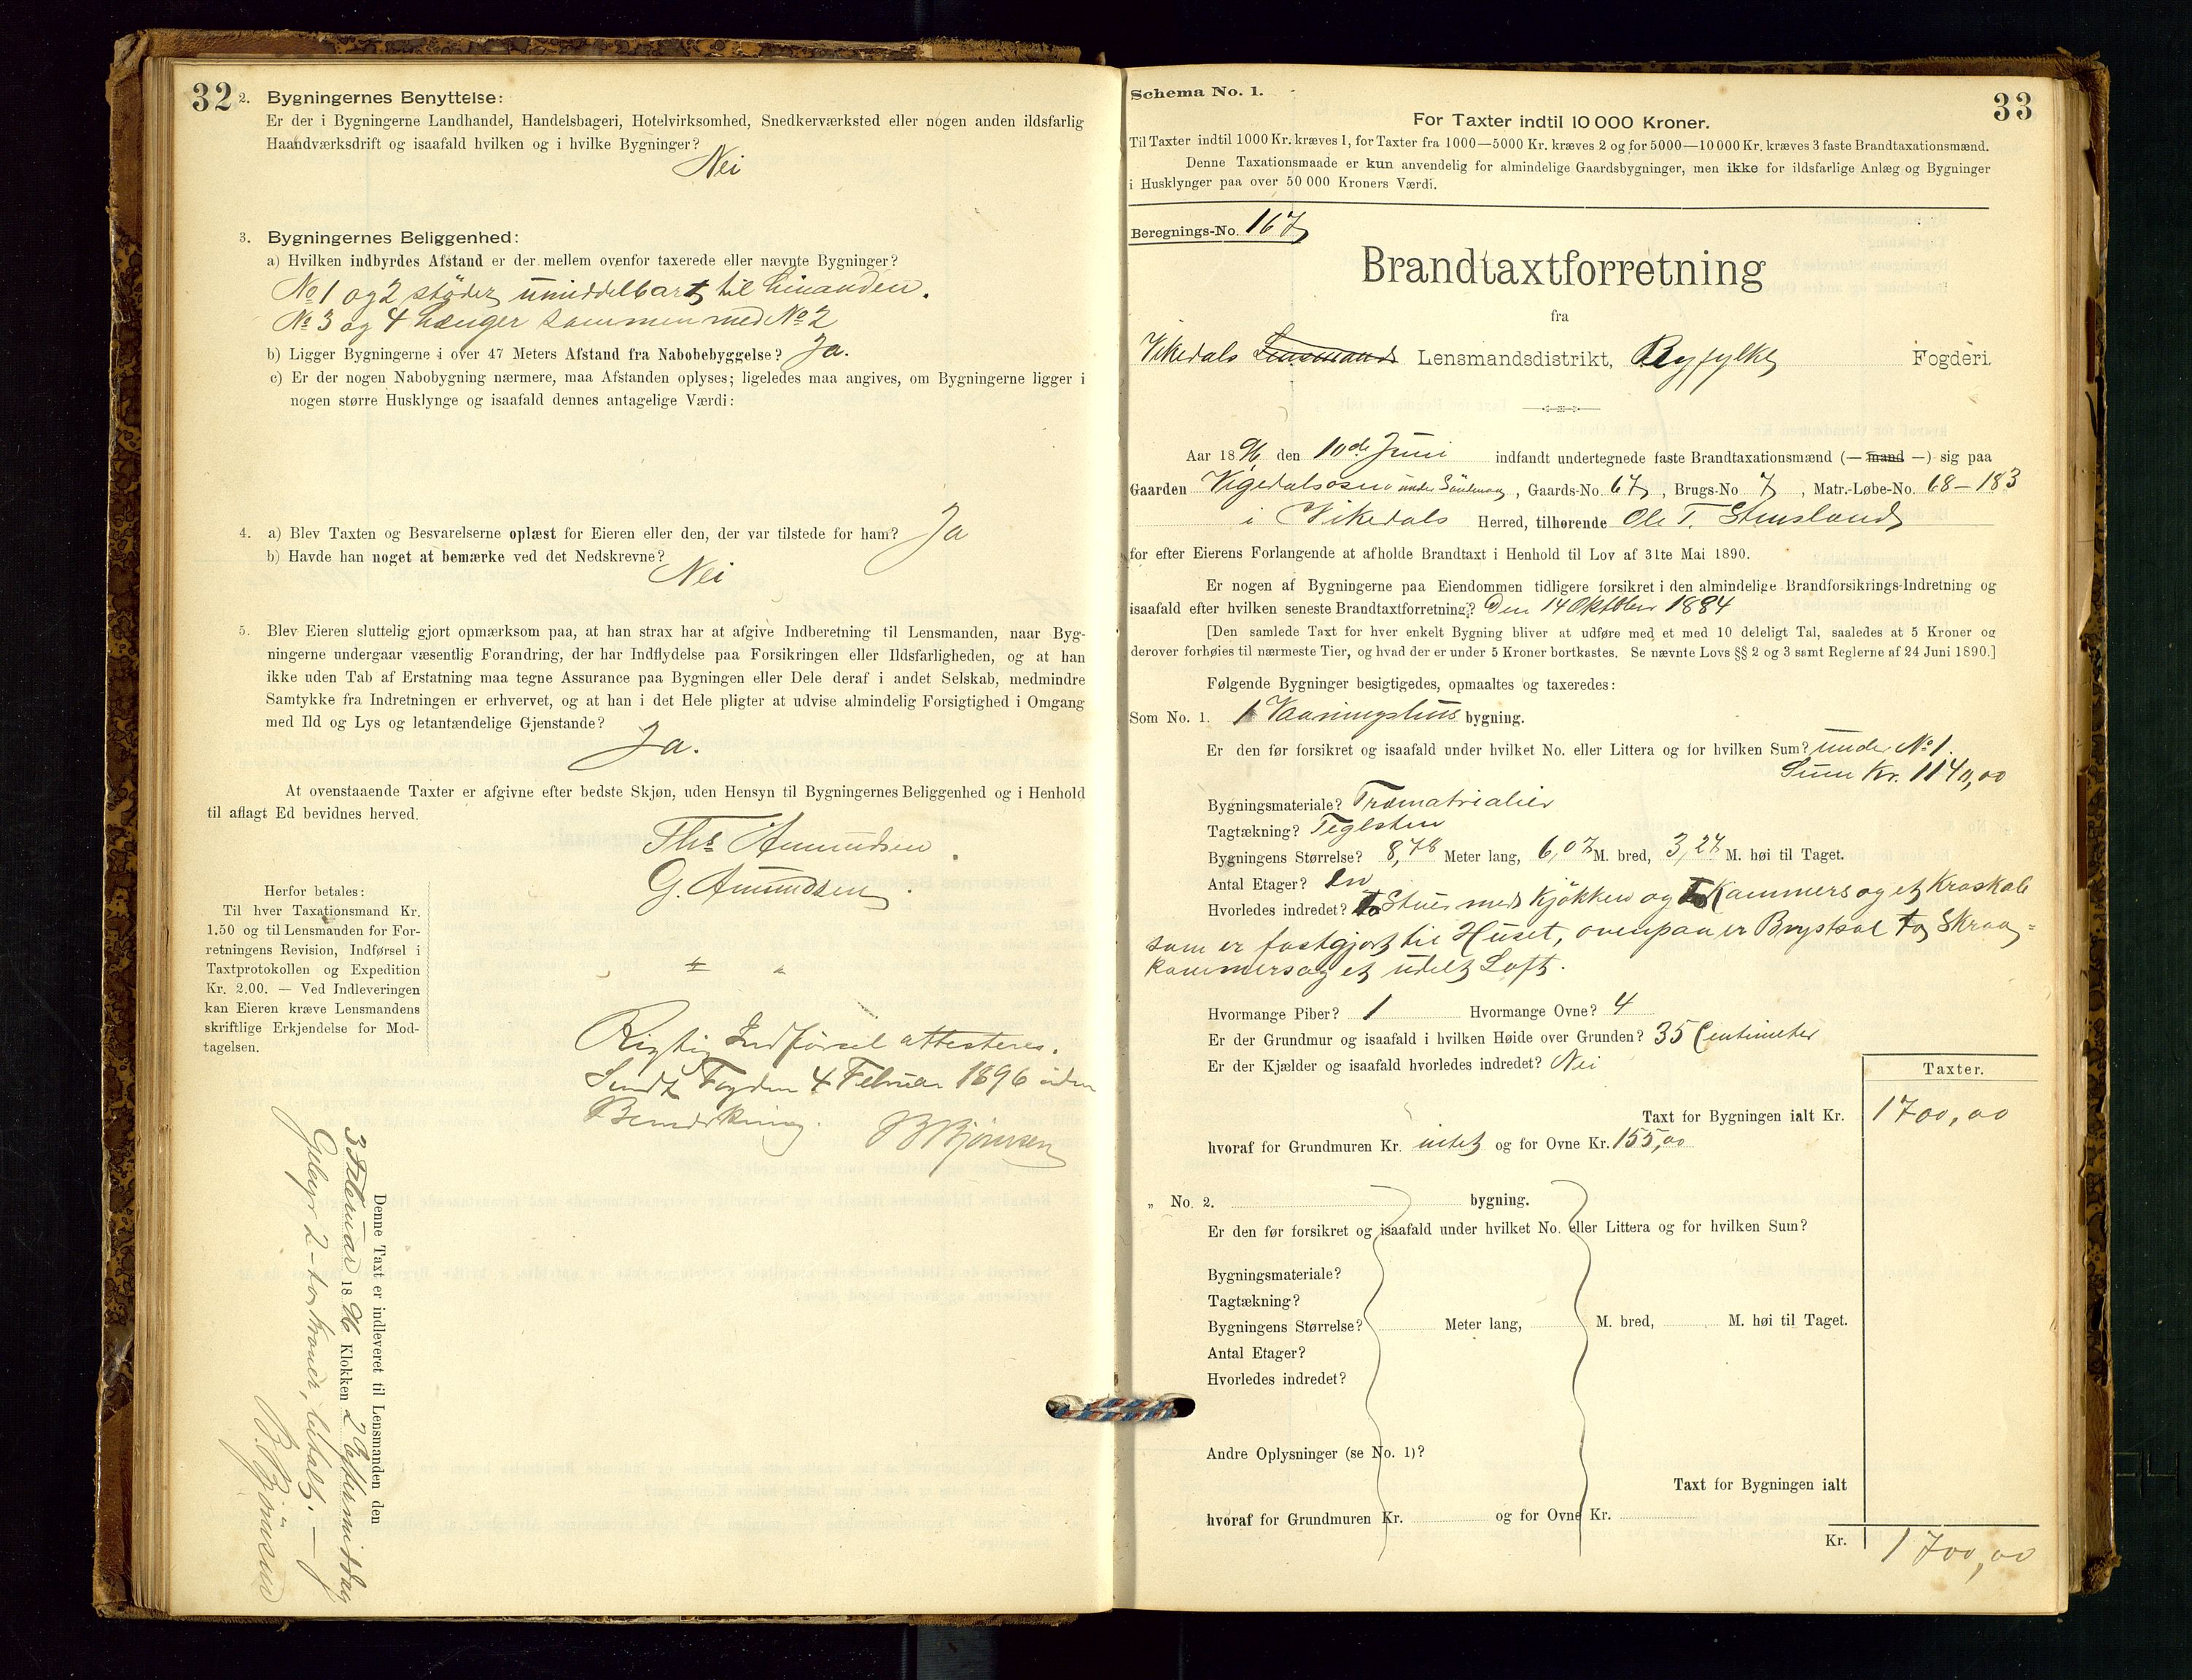 32
2. Bygningernes Benyttelse:
Er der i Bygningerne Landhandel, Handelsbageri, Hotelvirksomhed, Snedkerværksted eller nogen anden ildsfarlig
Haandværksdrift og isaafald hvilken og i hvilke Bygninger?
Nei
3. Bygningernes Beliggenhed:
a) Hvilken indbyrdes Afstand er der mellem ovenfor taxerede eller nævnte Bygninger?
No 1 og 2 støder umiddelbart til hinanden.
No 3 og 4 hænger sammen med No 2
b) Ligger Bygningerne i over 47 Meters Afstand fra Nabobebyggelse? Ja.
c) Er der nogen Nabobygning nærmere, maa Afstanden oplyses; ligeledes maa angives, om Bygningerne ligger i
nogen større Husklynge og isaafald dennes antagelige Værdi:
4. a) Blev Taxten og Besvarelserne oplæst for Eieren eller den, der var tilstede for ham? Ja
b) Havde han noget at bemærke ved det Nedskrevne?
Nei
5. Blev Eieren sluttelig gjort opmærksom paa, at han strax har at afgive Indberetning til Lensmanden, naar Byg-
ningerne undergaar væsentlig Forandring, der har Indflydelse paa Forsikringen eller Ildsfarligheden, og at han
ikke uden Tab af Erstatning maa tegne Assurance paa Bygningen eller Dele deraf i andet Selskab, medmindre
Samtykke fra Indretningen er erhvervet, og at han i det Hele pligter at udvise almindelig Forsigtighed i Omgang
med Ild og Lys og letantændelige Gjenstande?
Ja.
At ovenstaaende Taxter er afgivne efter bedste Skjøn, uden Hensyn til Bygningernes Beliggenhed og i Henhold
til aflagt Ed bevidnes herved.
Ths Amundsen
G. Amundsen
Herfor betales:
Til hver Taxationsmand Kr.
1.50 og til Lensmanden for For-
retningens Revision, Indførsel i
Taxtprotokollen og Expedition
Kr. 2.00. — Ved Indleveringen
kan Eieren kræve Lensmandens
skriftlige Erkjendelse for Mod-
tagelsen.
Rigtig Indførsel attesteres.
Sendt Fogden 4 Februar 1896 uden
Bemærkning. B Bjørnsen
Denne Taxt er indleveret til Lensmanden den
3 Februar 1896 Klokken 2 Eftermiddag
Gebyr 2 – to Kroner, betalt. —
B. Bjørnsen
Schema No. 1.
33
For Taxter indtil 10 000 Kroner.
Til Taxter indtil 1000 Kr. kræves 1, for Taxter fra 1000—5000 Kr. kræves 2 og for 5000—10 000 Kr. kræves 3 faste Brandtaxationsmænd.
Denne Taxationsmaade er kun anvendelig for almindelige Gaardsbygninger, men ikke for ildsfarlige Anlæg og Bygninger
i Husklynger paa over 50 000 Kroners Værdi.
Beregnings-No. 167
Brandtaxtforretning
fra
Vikedals Lensmands Lensmandsdistrikt, Ryfylke Fogderi.
Aar 1896 den 10de Juni indfandt undertegnede faste Brandtaxationsmænd (— mand —) sig paa
Gaarden Vigedalsosen under, Gaards-No 67, Brugs-No 7, Matr.-Løbe-No. 68 – 183
i Vikedals Herred, tilhørende Ole T. Stensland
for efter Eierens Forlangende at afholde Brandtaxt i Henhold til Lov af 31te Mai 1890.
Er nogen af Bygningerne paa Eiendommen tidligere forsikret i den almindelige Brandforsikrings-Indretning og
isaafald efter hvilken seneste Brandtaxtforretning? Den 14 Oktober 1884
[Den samlede Taxt for hver enkelt Bygning bliver at udføre med et med 10 deleligt Tal, saaledes at 5 Kroner og
derover forhøies til nærmeste Tier, og hvad der er under 5 Kroner bortkastes. Se nævnte Lovs §§ 2 og 3 samt Reglerne af 24 Juni 1890.]
Følgende Bygninger besigtigedes, opmaaltes og taxeredes:
Som No. 1. 1 Vaaningshus bygning.
Er den før forsikret og isaafald under hvilket No. eller Littera og for hvilken Sum? under No 1.
Sum Kr. 1140,00
Bygningsmateriale? Træmatrialier
Tagtækning? Teglsten
Bygningens Størrelse? 8,78 Meter lang, 6,07 M. bred, 3,27 M. høi til Taget.
Antal Etager? En
Hvorledes indredet? to Stuer med Kjøkken og to Kammers og et Kraskab
som er fastgjort til Huset, ovenpaa er Brystsal to Skraa=
kammers og et udelt Loft.
Hvormange Piber? 1 Hvormange Ovne? 4
Er der Grundmur og isaafald i hvilken Høide over Grunden? 35 Centimeter
Er der Kjælder og isaafald hvorledes indredet? Nei
Taxter.
Taxt for Bygningen ialt Kr. 1700,00
hvoraf for Grundmuren Kr. intet og for Ovne Kr. 155,00
„ No. 2. bygning.
Er den før forsikret og isaafald under hvilket No. eller Littera og for hvilken Sum?
Bygningsmateriale?
Tagtækning?
Bygningens Størrelse? Meter lang, M. bred, M. høi til Taget.
Antal Etager?
Hvorledes indredet?
Andre Oplysninger (se No. 1)?
Taxt for Bygningen ialt
hvoraf for Grundmuren Kr. og for Ovne Kr.
Kr. 1700,00